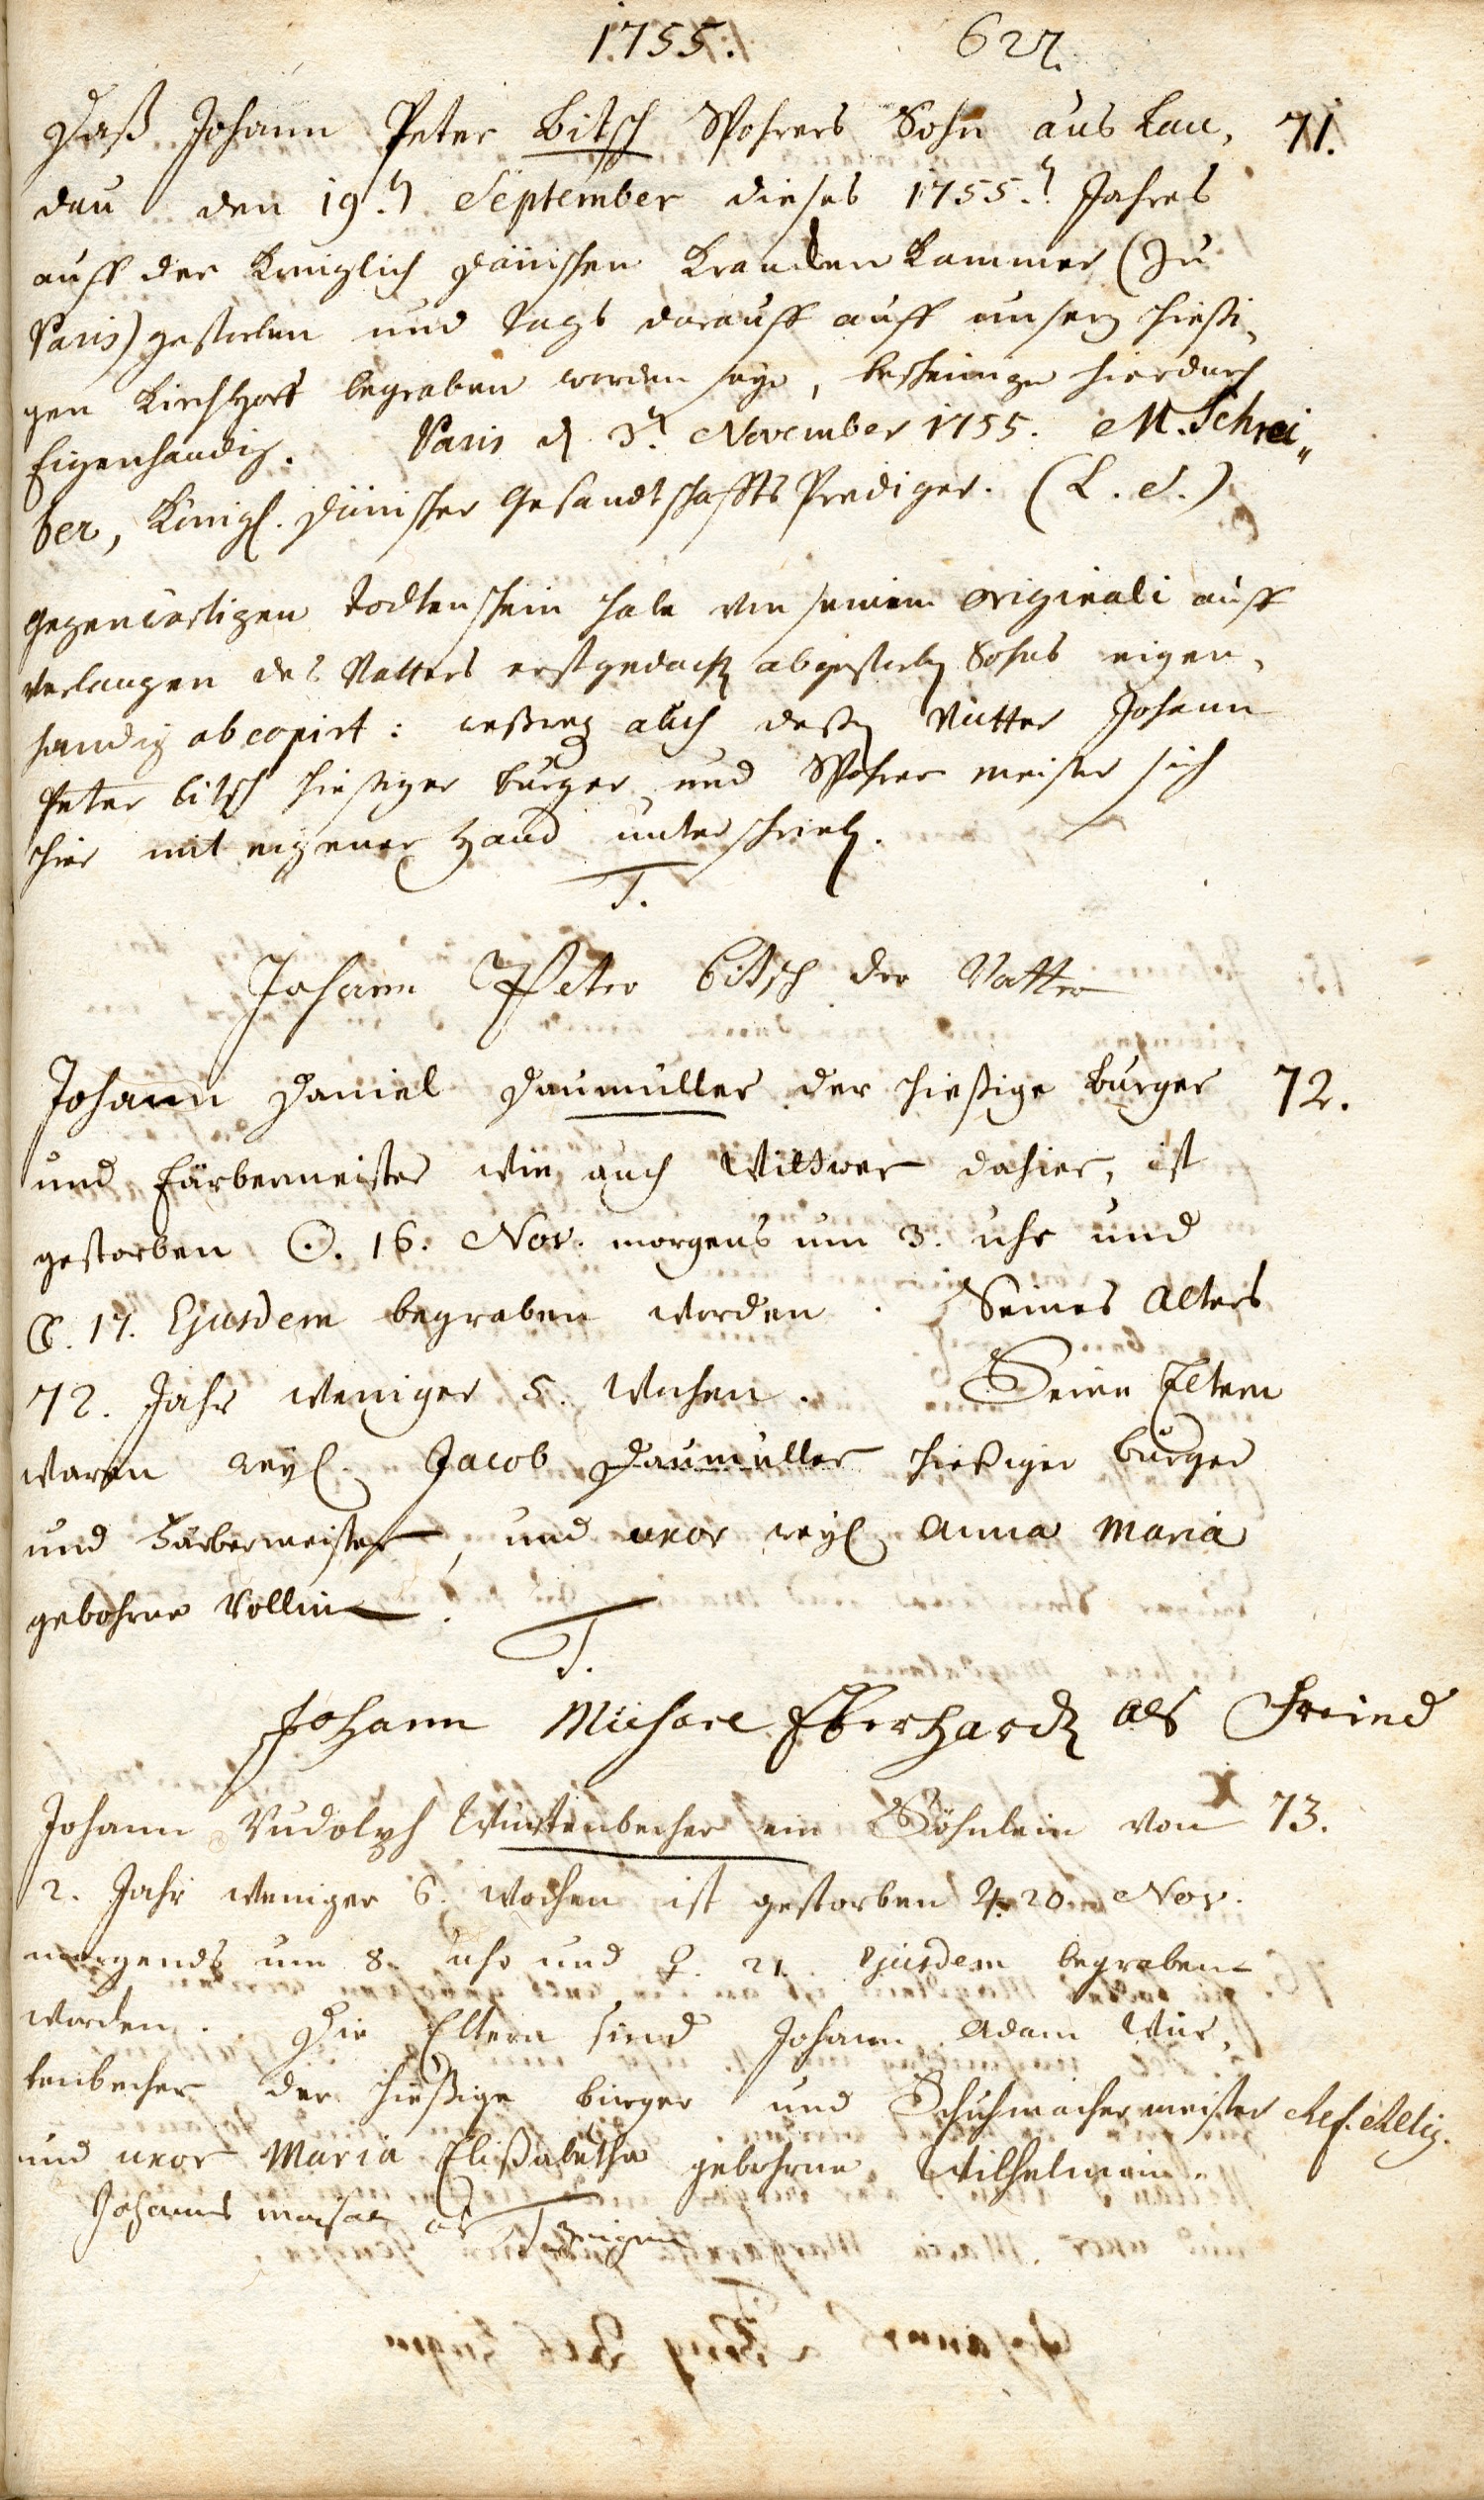 1755. 627.
Daß Johann Peter Bitsch Spohrers Sohn aus Lan, 71.
dau den 19.n September dieses 1755.n Jahres
auff der Königlich Dänischen Kranckenkammer (zu
Paris) gestorben und Tags darauff auff unserm hiesi,
gen Kirchhoff begraben worden seye, bescheinige hierdurch
Eigenhändig. Paris d. 3.n November 1755. M. Schrei„
ber, Königl. Dänischer Gesandtschaffts Prediger. (L. S.)
Gegenwärtigen Todtenschein habe von seinem originali auff
verlangen des Vatters erstgedachten abgestorbenen Sohns eigen,
händig abcopirt: weßwegen auch deßen Vatter Johann
Peter Bitsch hiesiger Burger und Spohrer meister sich
hier mit eigener Hand unterschrieben.
T.
Johann Peter Bitsch der Vatter
Johann Daniel Daumüller der hießige Burger 72.
und Färbermeister wie auch Wittwer dahier, ist
gestorben ☉. 16. Nov. morgens um 3. uhr und
☾. 17. Ejusdem begraben worden. Seines Alters
72. Jahr weniger 5. Wochen. Seine Eltern
waren weyl. Jacob Daumüller hießiger Burger
und Färbermeister, und uxor weyl. Anna Maria
gebohrne Vollin.
T.
Johann Michael Eberhardt als Freind
Johann Rudolph Würtenbecher ein Söhnlein von 73.
2. Jahr weniger 6. Wochen ist gestorben ♃. 20. Nov.
morgends um 8. uhr und ♀. 21. ejusdem begraben
worden. Die Eltern sind Johann Adam Wür,
tenbecher der hießige burger und Schuhmachermeister Ref. Relig.
und uxor Maria Elißabetha gebohrne Wilhelmin.
Johannes als T. Zeugen